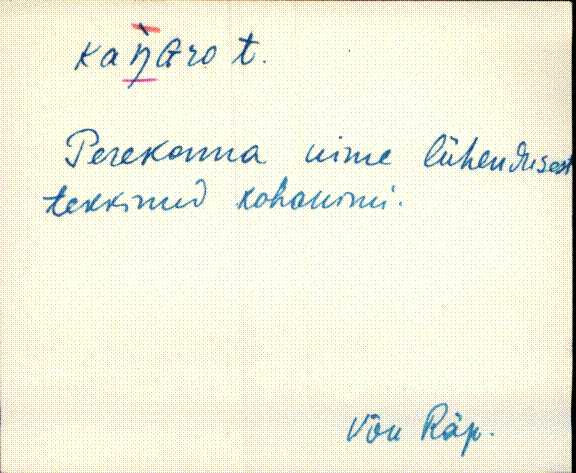 kaŋGro t.
Perekonna nime lühendusest
tekkinud kohanimi.
Võn Räp.